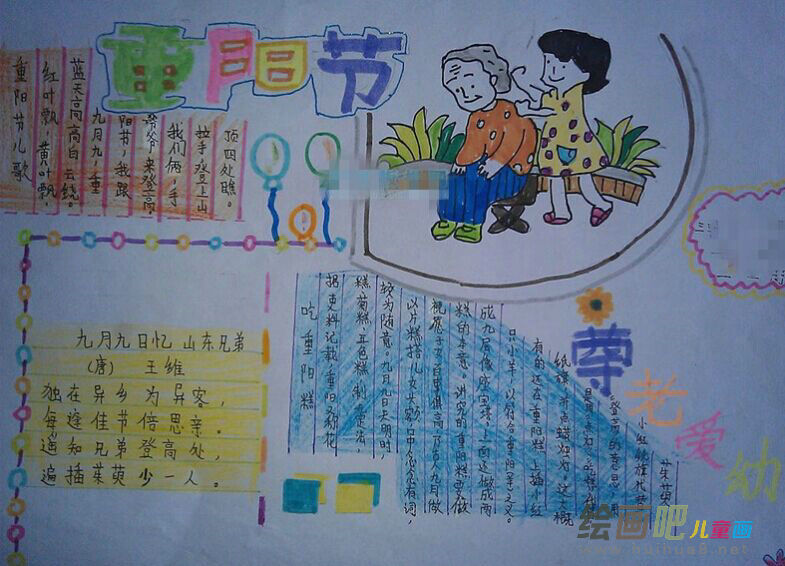 重阳节
重阳节儿歌
红叶飘,黄叶飘,
蓝天高高白云绕。
九月九,重
阳节,我跟
爷爷来登高,
我们俩,手
拉手,登上山
顶四处瞧。
九月九日忆 山东兄弟
(唐) 王维
独在异乡为异客,
每逢佳节倍思亲。
遥知兄弟登高处,
遍插茱萸少一人。
吃重阳糕
据史料记载,重阳又称花
糕菊糕,五色糕,制无定法,
较为随意。九月九日天明时
以片糕搭儿女头额,口中念念有词,
祝愿子女百事俱高,乃古人九月做
糕的本意。讲究的重阳糕要做
成九层像座宝塔,上面还做成两
只小羊,以符合重阳之义。
有的还在重阳糕上插小红
纸旗,并点蜡烛灯。这大概
是用点灯、吃糕代替
"登高"的意思,用
小红纸旗代替
茱萸
尊老爱幼
绘画吧儿童画
www.huihua8.net